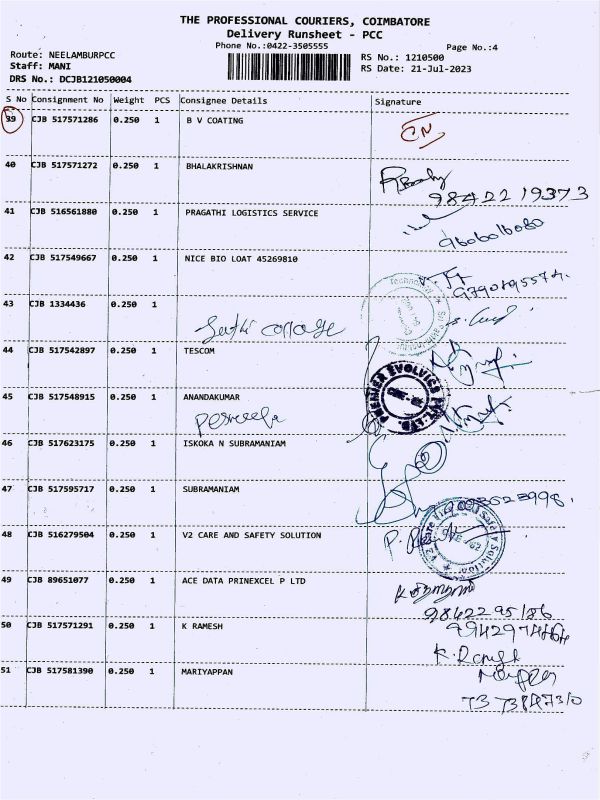 THE PROFESSIONAL COURIERS, COIMBATORE
Delivery Runsheet - PCC
Phone No.:0422-3505555
Page No.:4
Route: NEELAMBURPCC
RS No.: 1210500
Staff: MANI
RS Date: 21-Jul-2023
DRS No.: DCJB121050004
S No Consignment No Weight PCS Consignee Details Signature
39 CJB 517571286 0.250 1 B V COATING
40 CJB 517571272 0.250 1 BHALAKRISHNAN
9842219373
41 CJB 516561880 0.250 1 PRAGATHI LOGISTICS SERVICE
42 CJB 517549667 0.250 1 NICE BIO LOAT 45269810
43 CJB 1334436 0.250 1
44 CJB 517542897 0.250 1 TESCOM
45 CJB 517548915 1 0.250 ANANDAKUMAR
PREMIER EVOLVICS PVT. LTD.
46 CJB 517623175 0.250 1 ISKOKA N SUBRAMANIAM
47 CJB 517595717 0.250 1 SUBRAMANIAM
48 CJB 516279504 0.250 1 V2 CARE AND SAFETY SOLUTION
49 CJB 89651077 0.250 1 ACE DATA PRINEXCEL P LTD
50 CJB 517571291 0.250 1 K RAMESH
K. Ramesh
51 CJB 517581390 0.250 1 MARIYAPPAN